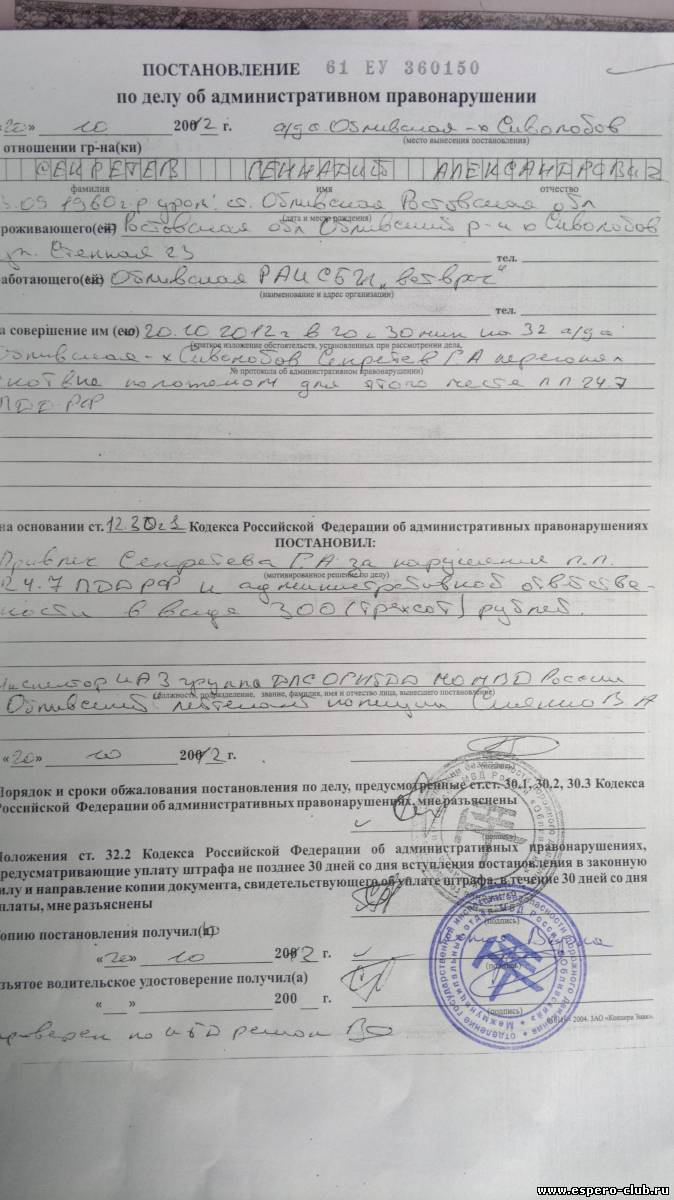 ПОСТАНОВЛЕНИЕ 61 ЕУ 360150
по делу об административном правонарушении
«20» 10 20012 г. а/д с. Обливская-х Сиволобов
(место вынесения постановления)
отношении гр-на(ки)
СЕКРЕТЕВ ГЕННАДИЙ АЛЕКСАНДРОВИЧ
фамилия имя отчество
.09 1960 г.р урож. ст. Обливская Ростовская обл
(дата и место рождения)
роживающего(ей) Ростовская обл Обливский р-н х Сиволобов
ул. Степная 23 тел.
аботающего(ей) Обливская
(наименование и адрес организации)
тел.
а совершение им (ею) 20.10.2012г в 20 ч 30 мин на 32 а/да
(краткое изложение обстоятельств, установленных при рассмотрении дела,
Обливская-х Сиволобов Секретев Г А перегонял
№ протокола об административном правонарушении)
положеном для этого места п.п 24.7
ПДД РФ
на основании ст. 12.30 ч 1 Кодекса Российской Федерации об административных правонарушениях
ПОСТАНОВИЛ:
Привлеч Секретева Г.А за нарушение п.п.
(мотивированное решение по делу)
24.7 ПДД РФ к административной ответстве-
ности в виде 300 (трехсот) рублей.
России
(должность, подразделение, звание, фамилия, имя и отчество лица, вынесшего постановление)
Обливский лейтенант полиции
«20» 10 20012 г.
(подпись)
Порядок и сроки обжалования постановления по делу, предусмотренные ст.ст. 30.1, 30.2, 30.3 Кодекса
Российской Федерации об административных правонарушениях, мне разъяснены
(подпись)
Положения ст. 32.2 Кодекса Российской Федерации об административных правонарушениях,
предусматривающие уплату штрафа не позднее 30 дней со дня вступления постановления в законную
илу и направление копии документа, свидетельствующего об уплате штрафа, в течение 30 дней со дня
платы, мне разъяснены
(подпись)
опию постановления получил(а)
«20» 10 20012 г.
(подпись)
зъятое водительское удостоверение получил(а)
« » 200 г.
(подпись)
2004. ЗАО «Концерн Знак».
www.espero-club.ru